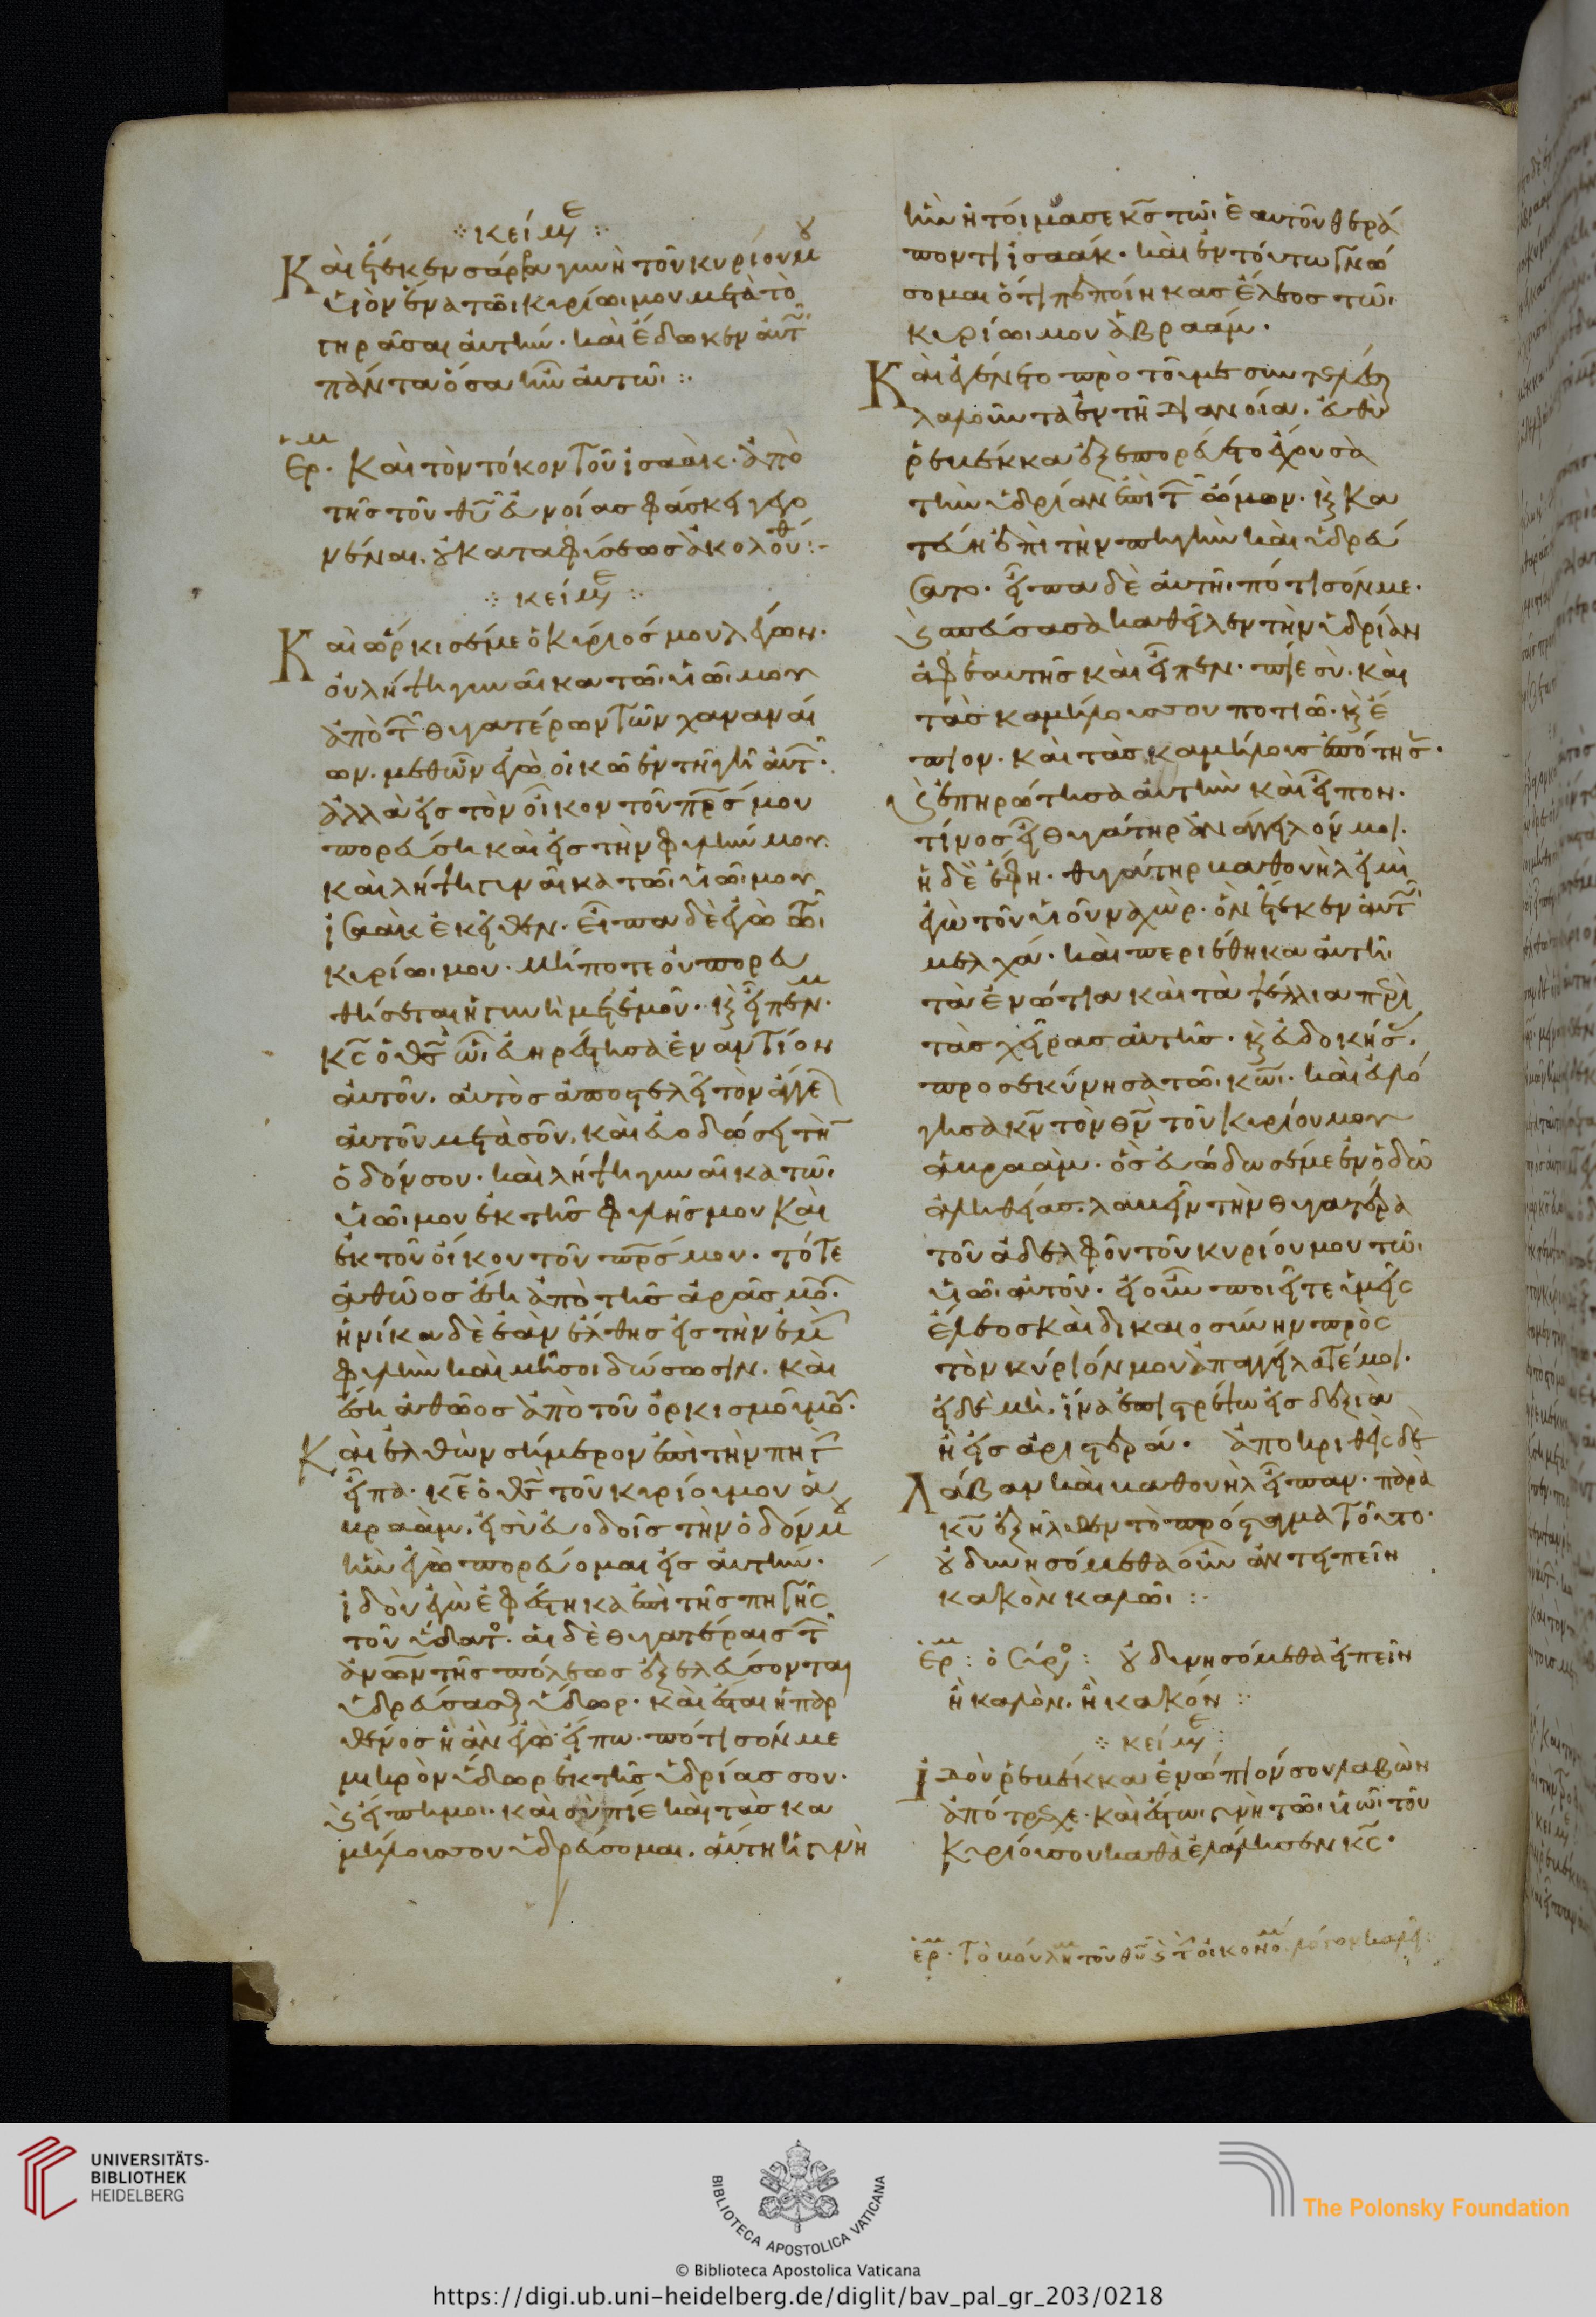 κείμε
Καὶ ἔτεκεν σάρρα γυνὴ τοῦ κυρίου μου
υἱὸν ἕνα τῶι κυρίωι μου μετὰ τὸ
γηρᾶσαι αὐτήν. καὶ ἔδωκεν αὐτῶι
πάντα ὅσα ἦν αὐτῶι :.
Ερμ. Καὶ τὸν τόκον τοῦ ἰσαάκ. ἀπὸ
τῆς τοῦ θυ εὐνοίας φάσκει γεγο
νέναι. οὐ κατα φύσεως ἀκολουθ :-
κείμε
Καὶ ὥρκισέ με ὁ κύριός μου λέγων.
οὐ λήψη γυναῖκα τῶι υἱῶι μου
ἀπὸ τ θυγατέρων τῶν χαναναί
ων. μεθ ὧν ἐγὼ οἰκῶ ἐν τῆ γῆ αὐτ.
ἀλλὰ εἰς τὸν οἶκον τοῦ πρς μου
πορεύση καὶ εἰς τὴν φυλήν μου.
καὶ λήψη γυναῖκα τῶι υἱῶι μου
ἰσαὰκ ἐκεῖθεν. εἶπα δὲ ἐγὼ τῶι
κυρίωι μου. μήποτε οὐ πορευ
θήσεται ἡ γυνὴ μετ ἐμοῦ. κ εἶπέν μ.
κς ὁ θς ὧι εὐηρέστησα ἐναντίον
αὐτοῦ. αὐτὸς ἀποστελεῖ τὸν ἄγγε
αὐτοῦ μετὰ σοῦ, καὶ εὐοδώσει τὴ
ὁδόν σου. καὶ λήψη γυναῖκα τῶι
υἱῶι μου ἐκ τῆς φυλῆς μου καὶ
ἐκ τοῦ οἴκου τοῦ πρς μου. τότε
ἀθῶος ἔση ἀπὸ τῆς ἀρᾶς μου.
ἡνίκα δὲ ἐὰν ἔλθης εἰς τὴν ἐμὴ
φυλὴν καὶ μή σοι δώσωσιν. καὶ
ἔση ἀθῶος ἀπὸ τοῦ ὁρκισμοῦ μου.
Καὶ ἐλθὼν σήμερον ἐπὶ τὴν πηγ
εἶπα. κε ὁ θς τοῦ κυρίου μου ἁ
βραὰμ. εἰ σὺ εὐοδοῖς τὴν ὁδόν μου
ἣν ἐγὼ πορεύομαι εἰς αὐτήν.
ἰδοὺ ἐγὼ ἐφέστηκα ἐπὶ τῆς πηγῆς
τοῦ ὕδατο. αἱ δὲ θυγατέραις τ
ἀνων τῆς πόλεως ἐξελεύσονται
ὑδρεύσασθ ὕδωρ. καὶ ἔσται ἡ παρ
θένος ἧ ἂν ἐγὼ εἴπω. πότισόν με
μικρὸν ὕδωρ ἐκ τῆς ὑδρίας σου.
κ εἴπη μοι. καὶ σὺ πίε καὶ τὰς κα
μήλοις σου ὑδρεύσομαι. αὕτη ἡ γυνὴ
ἣν ἡτοίμασε κς τῶι ἑαυτοῦ θερά
ποντι ἰσαάκ. καὶ ἐν τούτω γνώ
σομαι ὅτι πεποίηκας ἔλεος τῶι
κυρίωι μου ἀβραάμ.
Καὶ ἐγένετο πρὸ τοῦ με συντελέσαι
λαλοῦντα ἐν τῆ διανοία. εὐθὺ
ῥεβέκκα ἐξεπορεύετο ἔχουσα
τὴν ὑδρίαν ἐπὶ τ ὤμων. κ κα
τέβη ἐπὶ τὴν πηγὴν καὶ ὑδρεύ
σατο. εἶπα δὲ αὐτῆ. πότισόν με.
κ σπεύσασα καθεῖλεν τὴν ὑδρίαν
ἀφ ἑαυτῆς καὶ εἶπεν. πίε σὺ. καὶ
τὰς καμήλους σου ποτιῶ. κ ἔ
πιον. καὶ τὰς καμήλους ἐπότησ.
κ ἐπηρώτησα αὐτὴν καὶ εἶπον.
τίνος εἶ θυγάτηρ ἀνάγγειλόν μοι.
ἡ δὲ ἔφη. θυγάτηρ βαθουήλ εἰμι
ἐγὼ τοῦ υἱοῦ ναχώρ. ὃν ἔτεκεν αὐτῶι
μελχά. καὶ περιέθηκα αὐτῆ
τὰ ἐνώτια καὶ τὰ ψέλλια περὶ
τὰς χεῖρας αὐτῆς. κ εὐδοκήσ.
προσεκύνησα τῶι κωι. καὶ εὐλό
γησα κν τὸν θν τοῦ κυρίου μου
ἁβραάμ. ὃς εὐώδωσέ με ἐν ὁδῶ
ἀληθείας. λαβεῖν τὴν θυγατέρα
τοῦ ἀδελφοῦ τοῦ κυρίου μου τῶι
υἱῶι αὐτοῦ. εἰ οὖν ποιεῖτε ὑμεῖς
ἔλεος καὶ δικαιοσύνην πρὸς
τὸν κύριόν μου ἀπαγγείλατέ μοι.
εἰ δὲ μὴ. ἵνα ἐπιστρέψω εἰς δεξιὰν
ἢ εἰς ἀριστεράν. ἀποκριθεὶς δὲ
Λάβαν καὶ βαθουὴλ εἶπαν. παρὰ
κυ ἐξῆλθεν τὸ πρόσταγμα τοῦτο.
οὐ δυνησόμεθα οὖν ἀντειπεῖν
κακὸν καλῶι :.
Ερμ : ὁ Σύρο : οὐ δυνησόμεθα εἰπεῖν
ἢ καλὸν. ἢ κακόν :
κείμε
Ἰδοὺ ῥεβέκκα ἐνώπιόν σου λαβὼν
ἀπότρεχε. καὶ ἔστω γυνὴ τῶι υἱῶι τοῦ
κυρίου σου καθὰ ἐλάλησεν κς.
ερμ. Τὸ βούλημ τοῦ θυ κ τ οἰκονομ
UNIVERSITÄTS-
BIBLIOTHEK
HEIDELBERG
BIBLIOTECA APOSTOLICA VATICANA
The Polonsky Foundation
© Biblioteca Apostolica Vaticana
https://digi.ub.uni-heidelberg.de/diglit/bav_pal_gr_203/0218